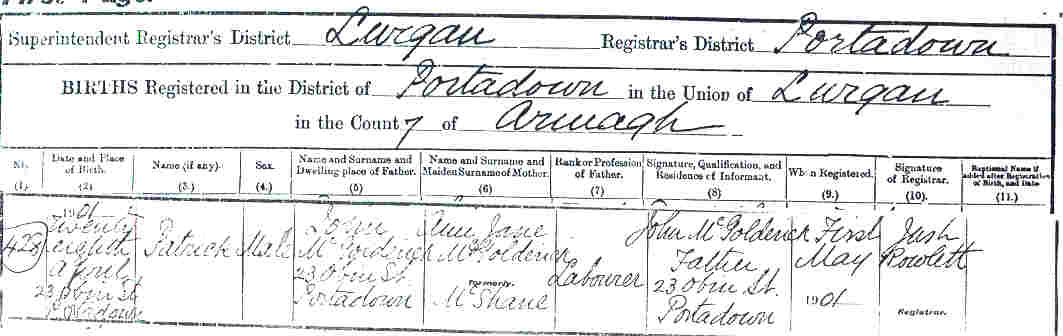 First Page.
Superintendent Registrar's District Lurgan Registrar's District Portadown
BIRTHS Registered in the District of Portadown in the Union of Lurgan
in the County of Armagh
No. (1.)
Date and Place of Birth. (2.)
Name (if any). (3.)
Sex. (4.)
Name and Surname and Dwelling place of Father. (5)
Name and Surname and Maiden Surname of Mother. (6)
Rank or Profession of Father. (7)
Signature, Qualification, and Residence of Informant. (8)
When Registered. (9.)
Signature of Registrar. (10.)
Baptismal Name if added after Registration of Birth, and Date (11.)
428
1901
Twenty
eighth
April
23 Obin St
Portadown
Patrick
Male
John
McGoldrick
23 Obin St.
Portadown
Ann Jane
McGoldrick
Formerly.
McShane
Labourer
John McGolderick
Father
23 Obin St.
Portadown
First
May
1901
Rowlett
Registrar.